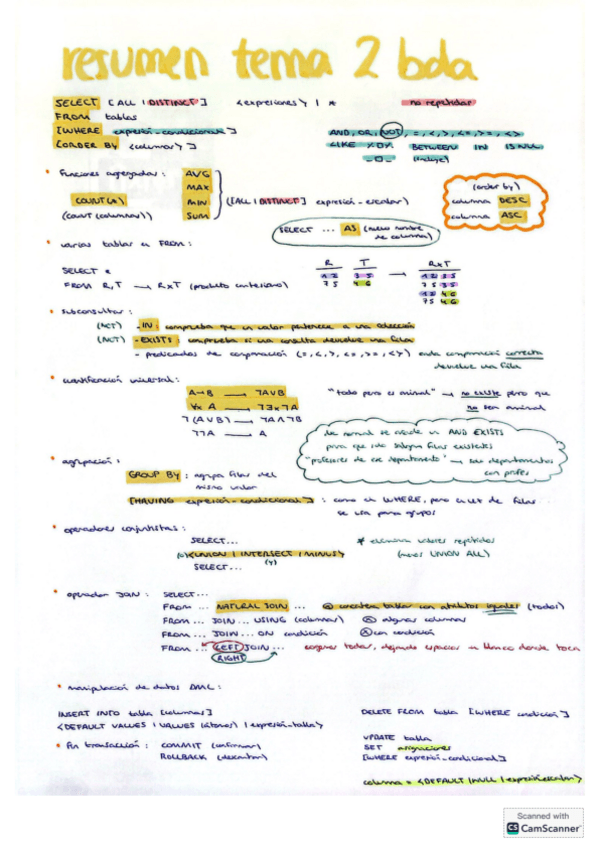 resumen tema 2 bda
SELECT [ALL | DISTINCT] <expresiones> | *
no repetidas
FROM tablas
[WHERE expresión-condicional]
AND, OR, NOT, =, <, >, <=, >=, <>
[ORDER BY <columnas>]
LIKE %D% BETWEEN IN IS NULL
• Funciones agregadas:
AVG
MAX
COUNT(*)
MIN
([ALL | DISTINCT] expresión-escalar)
(COUNT (columnas))
SUM
(order by)
columna DESC
columna ASC
SELECT ... AS (nuevo nombre
de columna)
• varias tablas en FROM:
SELECT *
FROM R,T → RxT (producto cartesiano)
R T → RxT
1 2 3 5 1 2 3 5
7 5 4 6 7 5 3 5
1 2 4 6
7 5 4 6
• subconsultas:
(NOT) - IN: comprueba que un valor pertenece a una colección
(NOT) - EXISTS: comprueba si una consulta devuelve una fila
- predicados de comparación (=, <, >, <=, >=, <>) cada comparación correcta
devuelve una fila
• cuantificación universal:
A→B → ¬A∨B
"todo perro es animal" → no existe perro que
no sea animal
∀x A → ¬∃x¬A
¬(A∨B) → ¬A∧¬B
¬¬A → A
de normal se añade un AND EXISTS
para que solo salgan filas existentes
"profesores de ese departamento" → solo departamentos
con profes
• agrupación:
GROUP BY: agrupa filas del
mismo valor
[HAVING expresión-condicional]: como en WHERE, pero en vez de filas
se usa para grupos
• operadores conjuntistas:
SELECT...
* elimina valores repetidos
(o) <UNION | INTERSECT | MINUS>
(y)
(menos UNION ALL)
SELECT...
• operador JOIN: SELECT...
FROM ... NATURAL JOIN ... concatena tablas con atributos iguales (todos)
FROM ... JOIN ... USING (columnas) algunas columnas
FROM ... JOIN ... ON condición con condición
FROM ... LEFT JOIN ... conservar todas, dejando espacios en blanco donde toca
RIGHT
• manipulación de datos DML:
INSERT INTO tabla [columnas]
<DEFAULT VALUES | VALUES (átomos) | expresión-tabla>
DELETE FROM tabla [WHERE condición]
• fin transacción: COMMIT (confirmar)
ROLLBACK (descartar)
UPDATE tabla
SET asignaciones
[WHERE expresión-condicional]
columna = <DEFAULT | NULL | expresión escalar>
Scanned with
CS CamScanner